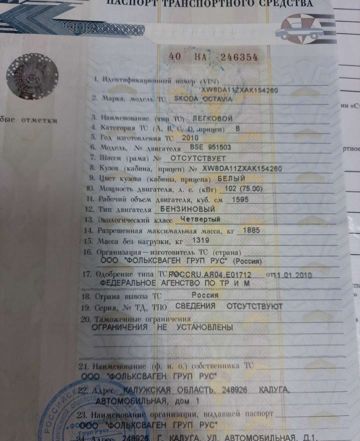 ПАСПОРТ ТРАНСПОРТНОГО СРЕДСТВА
40 НА 246354
1. Идентификационный номер (VIN)
XW8DA11ZXAK154260
2. Марка, модель ТС SKODA OCTAVIA
3. Наименование (тип ТС) ЛЕГКОВОЙ
4. Категория ТС (А, В, С, D, прицеп) B
5. Год изготовления ТС 2010
6. Модель, № двигателя BSE 951503
7. Шасси (рама) № ОТСУТСТВУЕТ
8. Кузов (кабина, прицеп) № XW8DA11ZXAK154260
9. Цвет кузова (кабины, прицепа) БЕЛЫЙ
10. Мощность двигателя, л. с. (кВт) 102 (75.00)
11. Рабочий объем двигателя, куб. см 1595
12. Тип двигателя БЕНЗИНОВЫЙ
13. Экологический класс Четвертый
14. Разрешенная максимальная масса, кг 1885
15. Масса без нагрузки, кг 1319
16. Организация-изготовитель ТС (страна)
ООО "ФОЛЬКСВАГЕН ГРУП РУС" (Россия)
17. Одобрение типа ТС РОСС RU.AЯ04.E01712 от 11.01.2010
ФЕДЕРАЛЬНОЕ АГЕНСТВО ПО ТР И М
18. Страна вывоза ТС Россия
19. Серия, № ТД, ТПО СВЕДЕНИЯ ОТСУТСТВУЮТ
20. Таможенные ограничения
ОГРАНИЧЕНИЯ НЕ УСТАНОВЛЕНЫ
бые отметки
21. Наименование (ф. и. о.) собственника ТС
ООО "ФОЛЬКСВАГЕН ГРУП РУС"
22. Адрес КАЛУЖСКАЯ ОБЛАСТЬ, 248926 КАЛУГА,
АВТОМОБИЛЬНАЯ, дом 1
23. Наименование организации, выдавшей паспорт
ООО "ФОЛЬКСВАГЕН ГРУП РУС"
24. Адрес 248926 Г. КАЛУГА УЛ. АВТОМОБИЛЬНАЯ Д.1